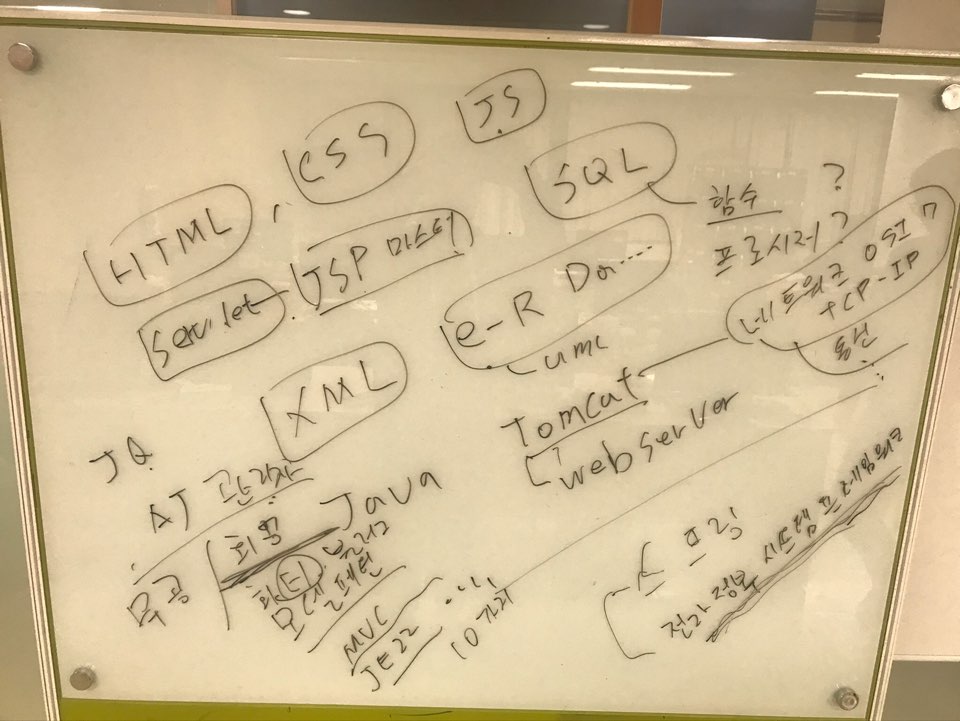 HTML, CSS JS
SQL 함수 ?
프로시저 ?
Servlet JSP 마스터
e-R
uml
네트워크 OSI 7
TCP-IP
통신
XML
Tomcat
webserver
JQ
AJ 관리자
Java
무공
회원
모델
패턴
MVC
10가지
스프링
전자정부 시스템 프레임워크